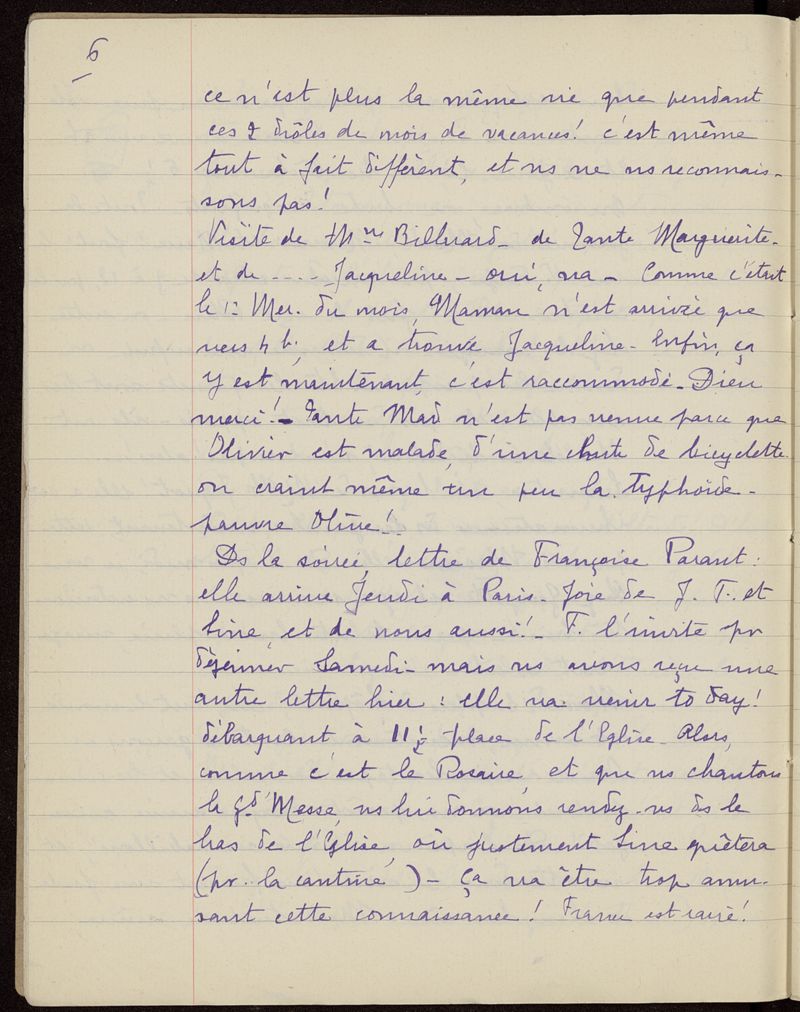 6
ce n'est plus la même vie que pendant
ces 2 drôles de mois de vacances! c'est même
tout à fait différent, et ns ne ns reconnais-
sons pas!
Visite de Mme Billuard - de Tante Marguerite -
et de .... Jacqueline - oui, va - Comme c'était
le 1er Mer. du mois, Maman n'est arrivée que
vers 4 h; et a trouvé Jacqueline - Enfin, ça
y est maintenant, c'est raccommodé - Dieu
merci! - Tante Mad n'est pas venue parce que
Olivier est malade, d'une chute de bicyclette
on craint même un peu la typhoïde -
pauvre Olive!..
Ds la soirée, lettre de Françoise Parant:
elle arrive Jeudi à Paris - Joie de J. T. et
Line, et de nous aussi! - F. l'invite pr
déjeuner Samedi - mais ns avons reçu une
autre lettre hier: elle va venir to day!
débarquant à 11 ½ place de l'Eglise - Alors,
comme c'est le Rosaire, et que ns chantons
la Gd' Messe, ns lui donnons rendez-vs ds le
bas de l'Eglise, où justement Line quêtera
(pr. la cantine) - ça va être trop amu-
sant cette connaissance! France est ravie!